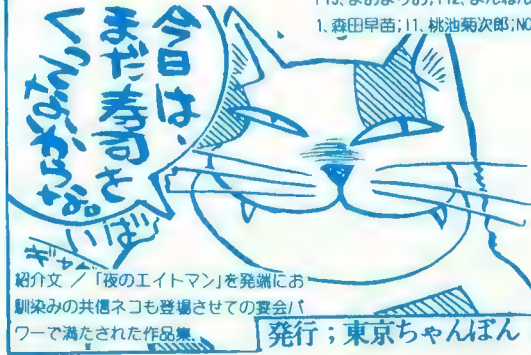 1、森田早苗;11、桃池菊次郎;NO
今日は、
まだ寿司を
くってないからな。
紹介文 ／「夜のエイトマン」を発端にお
馴染みの共信ネコも登場させての宴会パ
ワーで満たされた作品集.
発行；東京ちゃんぽん